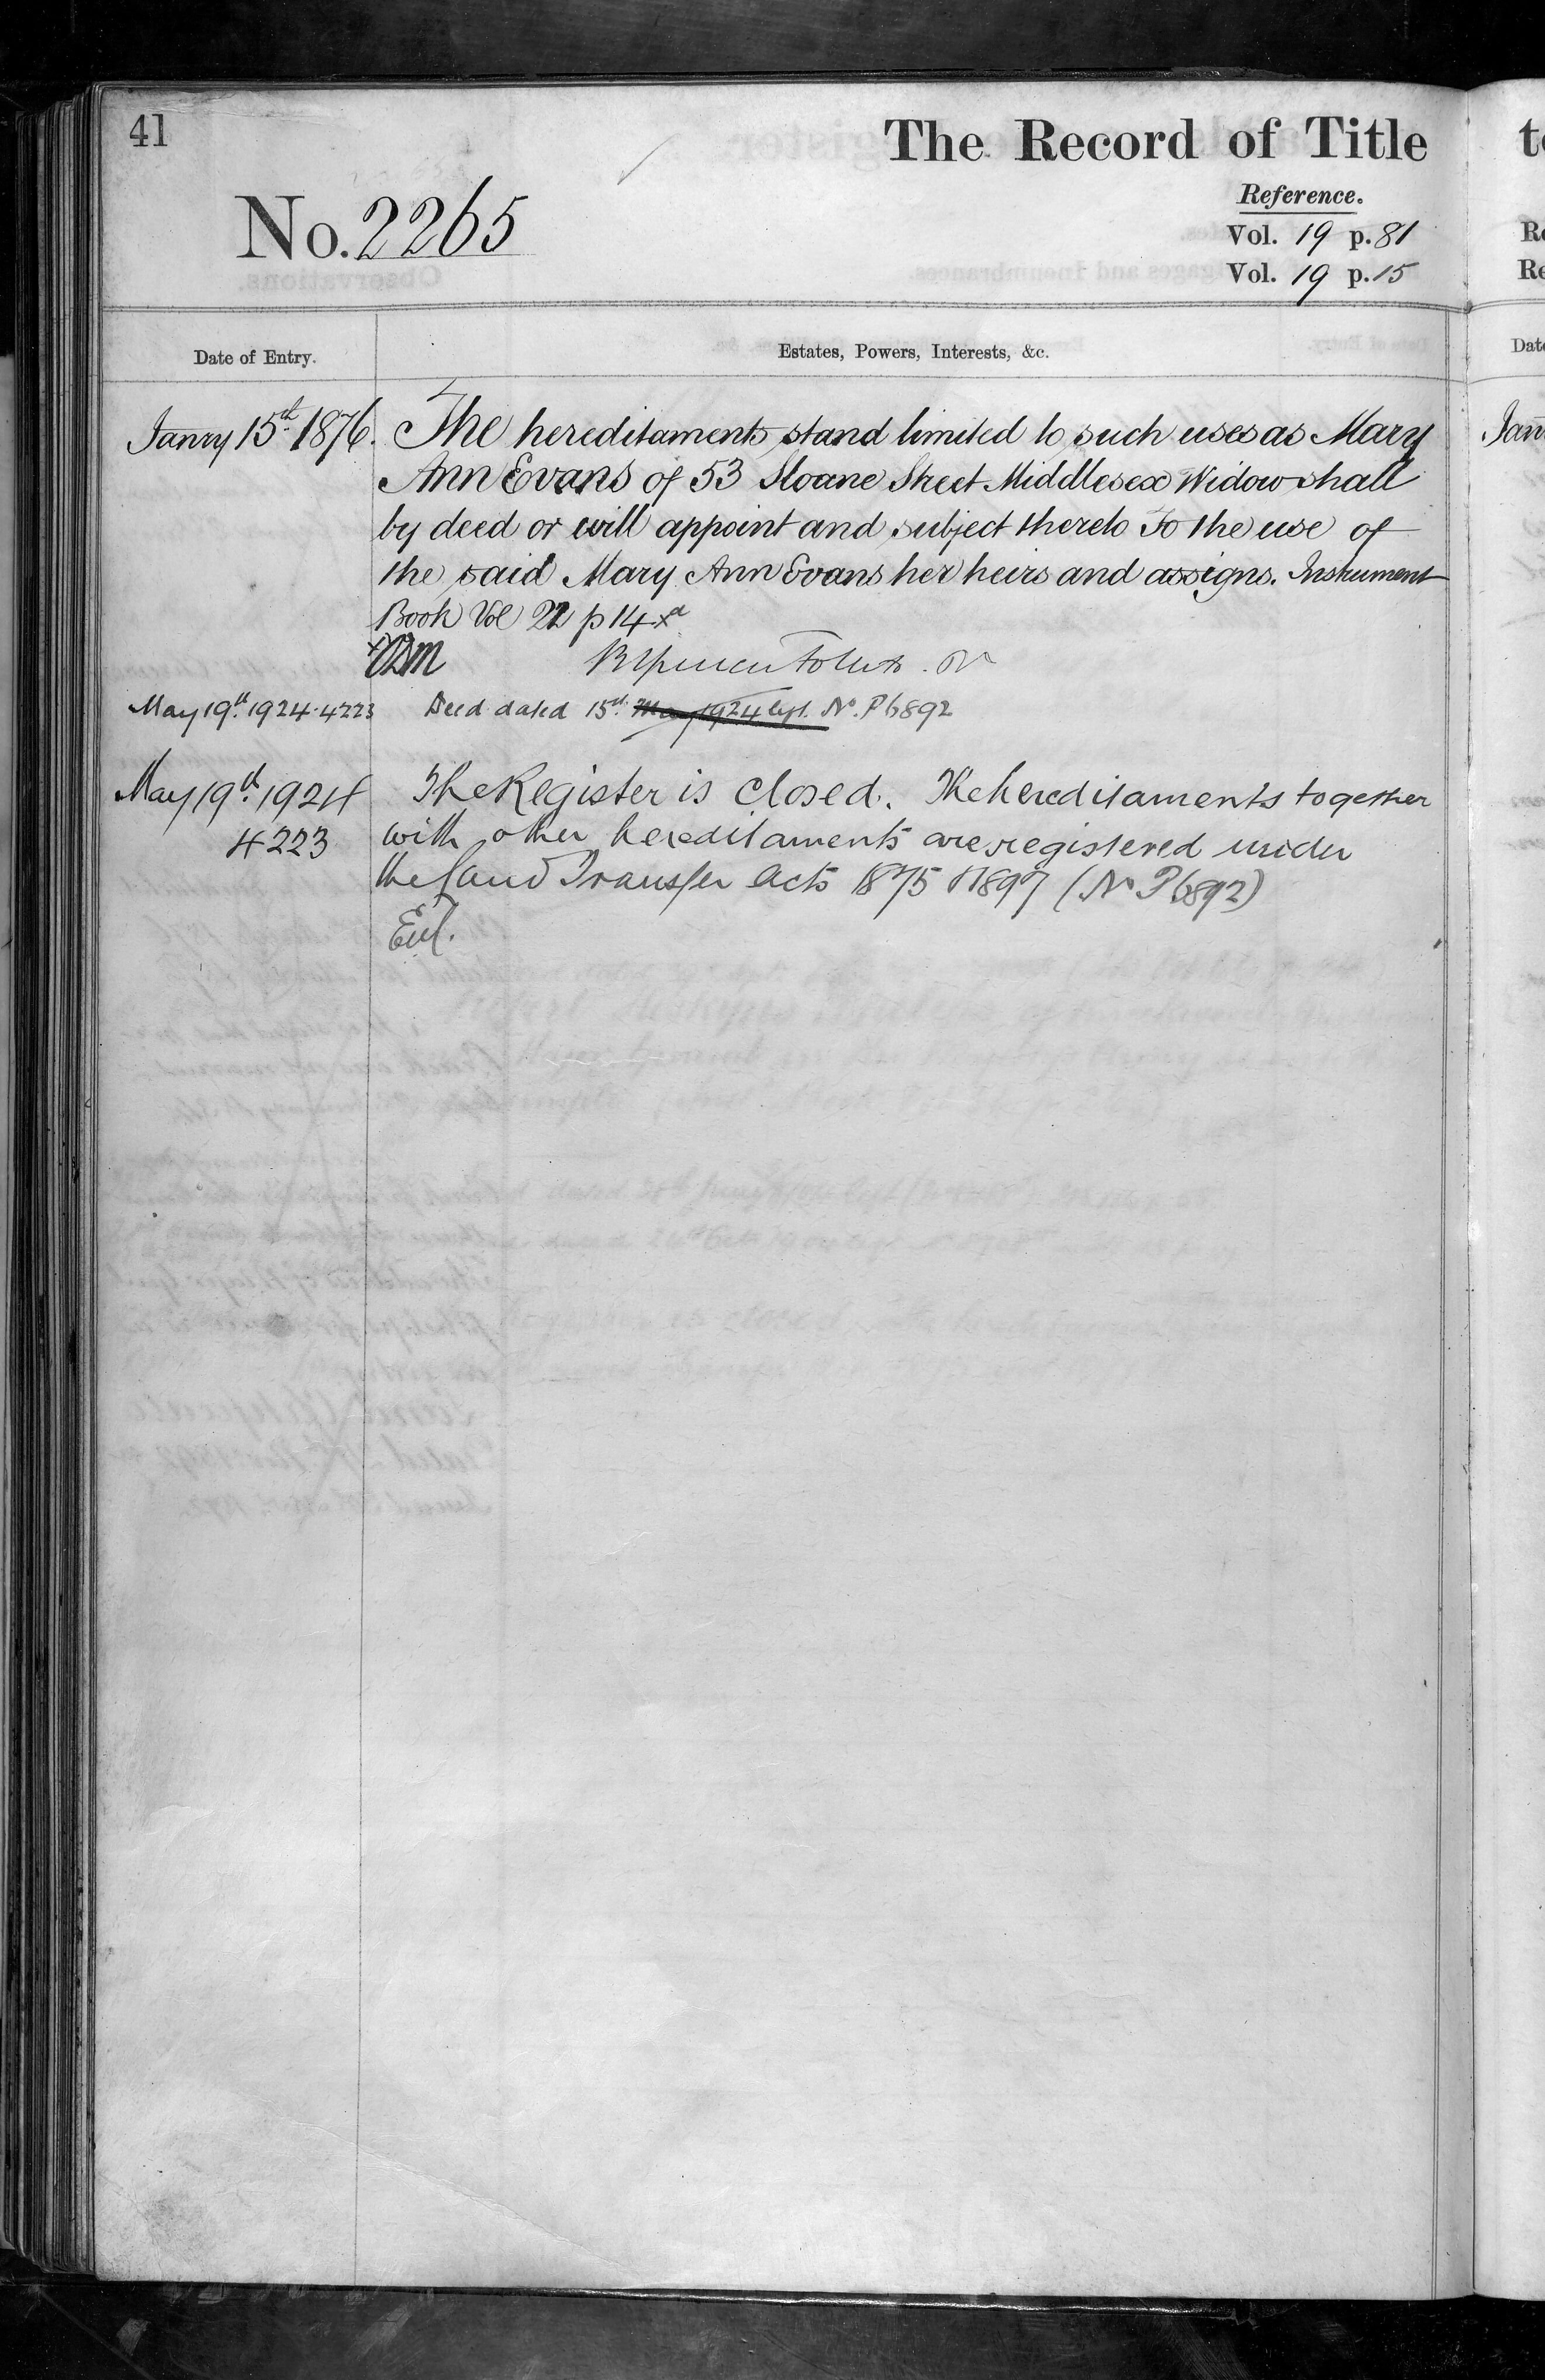 41
The Record of Title
No. 2265
Reference.
Vol. 19 p. 81
Vol. 19 p. 15
Date of Entry.
Estates, Powers, Interests, &c.
Janry 15th 1876. The hereditaments stand limited to such uses as Mary
Ann Evans of 53 Sloane Street Middlesex Widow shall
by deed or will appoint and subject thereto To the use of
the said Mary Ann Evans her heirs and assigns. Instrument
Book Vol 22 p 14
May 19th 1924. 4223 Deed dated 15th May 1924 No. P6892
May 19th 1924 The Register is closed. The hereditaments together
4223 with other hereditaments are registered under
the Land Transfer Acts 1875 & 1897 (No P6892)